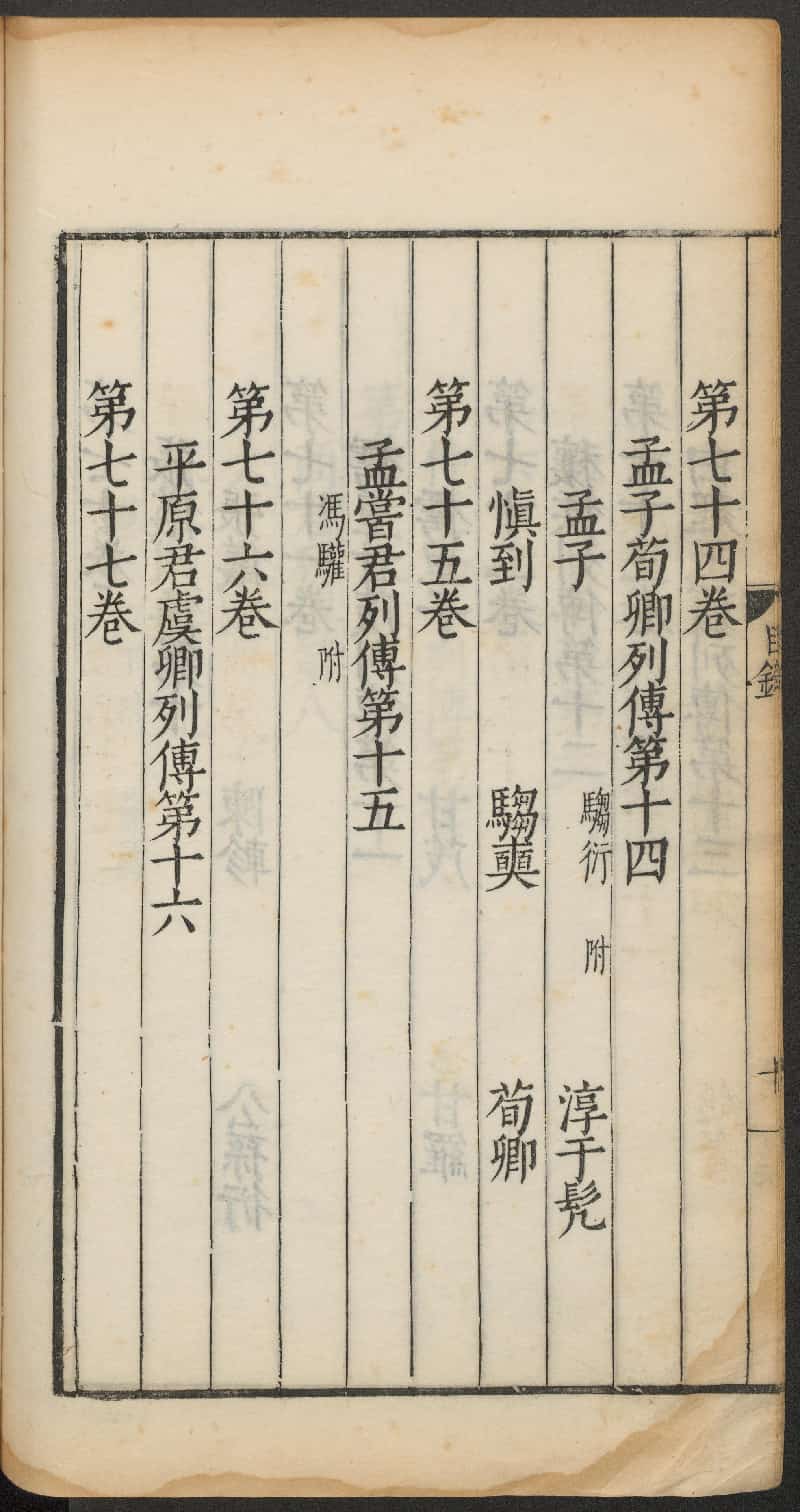 第七十四卷
孟子荀卿列傳第十四
孟子 騶衍 附 淳于髡
愼到 騶奭 荀卿
第七十五卷
孟嘗君列傳第十五
馮驩 附
第七十六卷
平原君虞卿列傳第十六
第七十七卷
目錄